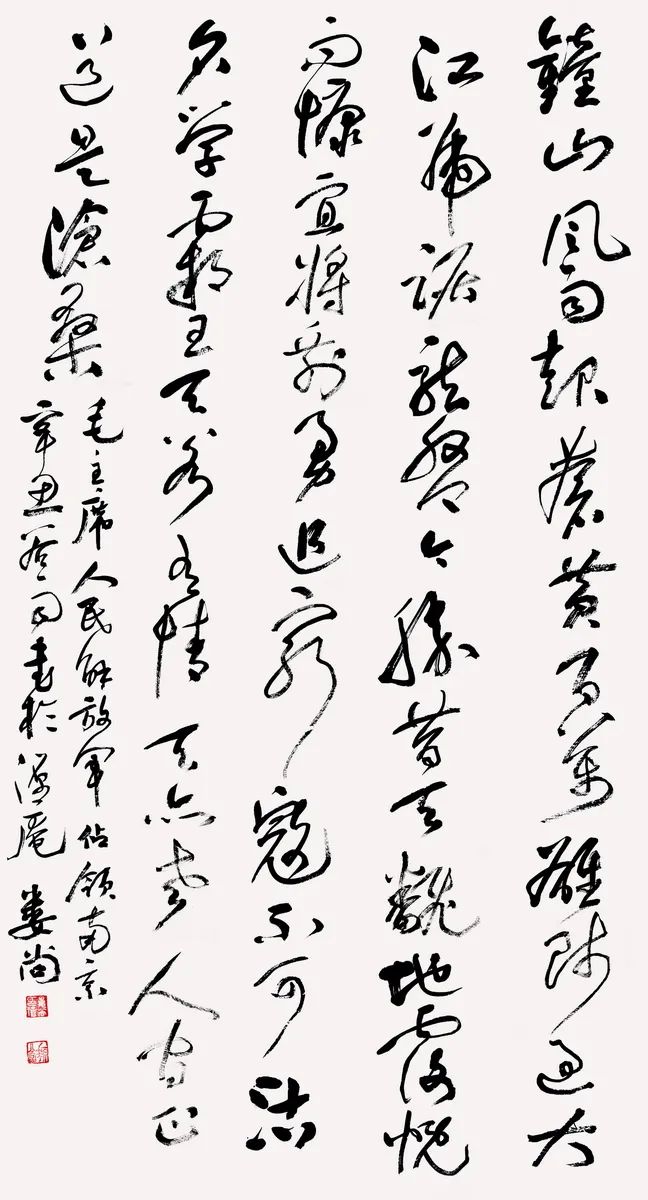 鐘山風雨起蒼黃百萬雄師過大
江虎踞龍盤今勝昔天翻地覆慨
而慷宜將剩勇追窮寇不可沽
名學霸王天若有情天亦老人間正
道是滄桑
毛主席人民解放軍佔領南京
辛丑谷雨書於庵 婁尚